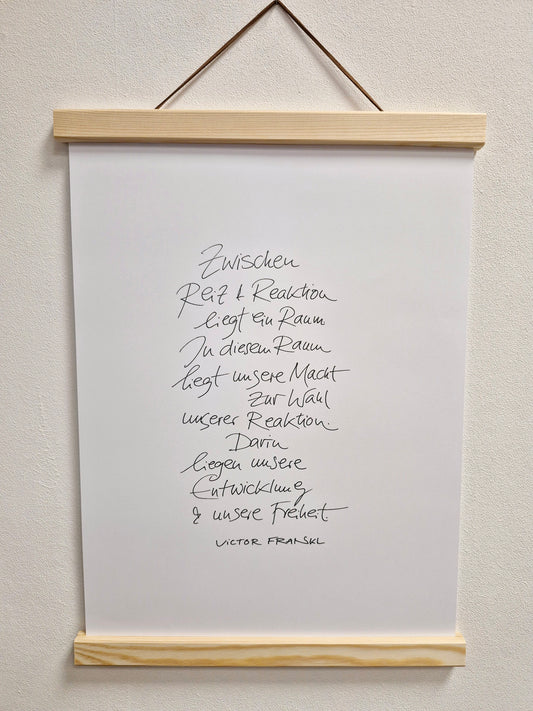 Zwischen
Reiz & Reaktion
liegt ein Raum.
In diesem Raum
liegt unsere Macht
zur Wahl
unserer Reaktion.
Darin
liegen unsere
Entwicklung
& unsere Freiheit.
VICTOR FRANKL